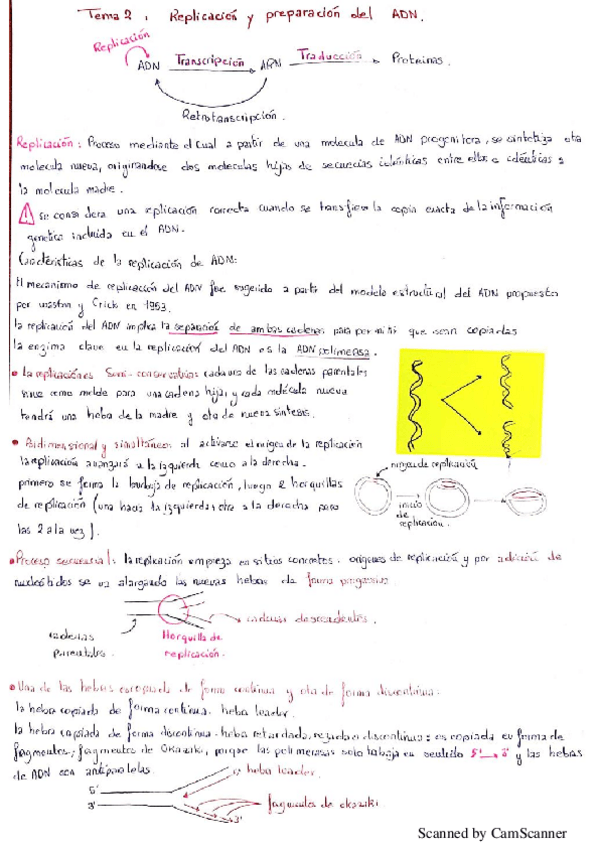 Tema 2. Replicación y preparación del ADN.
Replicación
ADN Transcripción ARN Traducción Proteinas.
Retrotranscripción.
Replicación: Proceso mediante el cual a partir de una molecula de ADN progenitora, se sintetiza otra
molecula nueva, originandose dos moleculas hijas de secuencias idénticas entre ellas e idénticas a
la molecula madre.
Se considera una replicación correcta cuando se transfiere la copia exacta de la información
genetica incluida en el ADN.
Características de la replicación de ADN:
El mecanismo de replicación del ADN fue sugerido a partir del modelo estructural del ADN propuesto
por waston y Crick en 1953.
la replicación del ADN implica la separación de ambas cadenas para permitir que sean copiadas
la enzima clave en la replicación del ADN es la ADN polimersa.
• la replicación es Semi-conservativa: cada una de las cadenas parentales
sirve como molde para una cadena hija, y cada molécula nueva
tendrá una hebra de la madre y otra de nueva sintesis.
• Bidimensional y simultáneo: al activarse el origen de la replicación
la replicación avanzará a la izquierda como a la derecha.
primero se forma la burbuja de replicación, luego 2 horquillas
de replicación (una hacia la izquierda y otra a la derecha para
las 2 a la vez).
origen de replicación
inicio
de
replicación.
• Proceso secuencial: la replicación empieza en sitios concretos. origenes de replicación y por adición de
nucleótidos se va alargando las nuevas hebras de forma progresiva.
cadenas descendentes.
cadenas
parentales.
Horquilla de
replicación.
• Una de las hebras es copiada de forma continua y otra de forma discontinua:
la hebra copiada de forma continua. hebra leader.
la hebra copiada de forma discontinua. hebra retardada, rezagada o discontinua: es copiada en forma de
fragmentos, fragmentos de Okazaki, porque las polimerasas solo trabaja en sentido 5' → 3' y las hebras
de ADN son antiparalelas.
hebra leader.
5'
3'
fragmentos de okazaki
3'
Scanned by CamScanner